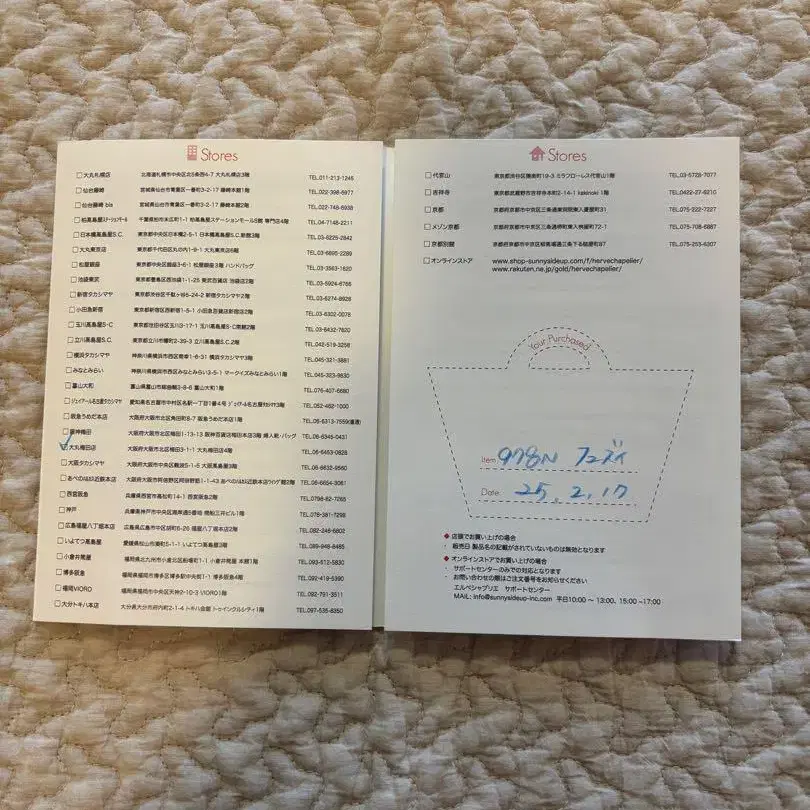 Stores
大丸札幌店 北海道札幌市中央区北5条西4-7 大丸札幌店3階 TEL.011-213-1245
仙台藤崎 宮城県仙台市青葉区一番町3-2-17 藤崎本館1階 TEL.022-398-6977
仙台藤崎 bis 宮城県仙台市青葉区一番町3-2-17 藤崎本館2階 TEL.022-748-6938
柏髙島屋ステーションモール 千葉県柏市末広町1-1 柏髙島屋ステーションモールS館 専門店4階 TEL.04-7148-2211
日本橋髙島屋S.C. 東京都中央区日本橋2-5-1 日本橋髙島屋S.C.新館3階 TEL.03-6225-2842
大丸東京店 東京都千代田区丸の内1-9-1 大丸東京店6階 TEL.03-6695-2289
松屋銀座 東京都中央区銀座3-6-1 松屋銀座3階 ハンドバッグ TEL.03-3563-1620
池袋東武 東京都豊島区西池袋1-1-25 東武百貨店 池袋店2階 TEL.03-5924-8766
新宿タカシマヤ 東京都渋谷区千駄ヶ谷5-24-2 新宿タカシマヤ2階 TEL.03-6274-8928
小田急新宿 東京都新宿区西新宿1-5-1 小田急百貨店新宿店2階 TEL.03-6302-0078
玉川髙島屋S・C 東京都世田谷区玉川3-17-1 玉川髙島屋S・C南館2階 TEL.03-6432-7620
立川髙島屋S.C. 東京都立川市曙町2-39-3 立川髙島屋S.C.2階 TEL.042-519-3258
横浜タカシマヤ 神奈川県横浜市西区南幸1-6-31 横浜タカシマヤ3階 TEL.045-321-3881
みなとみらい 神奈川県横浜市西区みなとみらい3-5-1 マークイズみなとみらい1階 TEL.045-323-9630
富山大和 富山県富山市総曲輪3-8-6 富山大和1階 TEL.076-407-6680
ジェイアール名古屋タカシマヤ 愛知県名古屋市中村区名駅一丁目1番4号 ジェイアール名古屋タカシマヤ3階 TEL.052-462-1000
阪急うめだ本店 大阪府大阪市北区角田町8-7 阪急うめだ本店1階 TEL.06-6313-7559(直通)
阪神梅田 大阪府大阪市北区梅田1-13-13 阪神百貨店梅田本店3階 婦人靴・バッグ TEL.06-6346-0431
大丸梅田店 大阪府大阪市北区梅田3-1-1 大丸梅田店4階 TEL.06-6453-0828
大阪タカシマヤ 大阪府大阪市中央区難波5-1-5 大阪髙島屋3階 TEL.06-6632-9560
あべのハルカス近鉄本店 大阪府大阪市阿倍野区阿倍野筋1-1-43 あべのハルカス近鉄本店ウイング館2階 TEL.06-6654-3061
西宮阪急 兵庫県西宮市高松町14-1 西宮阪急2階 TEL.0798-62-7265
神戸 兵庫県神戸市中央区海岸通5番地 商船三井ビル1階 TEL.078-381-7298
広島福屋八丁堀本店 広島県広島市中区胡町6-26 福屋八丁堀本店2階 TEL.082-246-6802
いよてつ髙島屋 愛媛県松山市湊町5-1-1 いよてつ髙島屋3階 TEL.089-946-8485
小倉井筒屋 福岡県北九州市小倉北区船場町1-1 小倉井筒屋 本館1階 TEL.093-612-5830
博多阪急 福岡県福岡市博多区博多駅中央街1-1 博多阪急4階 TEL.092-419-5390
福岡VIORO 福岡県福岡市中央区天神2-10-3 VIORO1階 TEL.092-791-3511
大分トキハ本店 大分県大分市府内町2-1-4 トキハ会館 トゥインクルシティ1階 TEL.097-535-8350
Stores
代官山 東京都渋谷区猿楽町19-3 ミラフローレス代官山1階 TEL.03-5728-7077
吉祥寺 東京都武蔵野市吉祥寺本町2-14-1 kakinoki 1階 TEL.0422-27-6210
京都 京都府京都市中京区三条通東洞院東入菱屋町31 TEL.075-222-7227
メゾン京都 京都府京都市中京区三条通堺町東入桝屋町72-1 TEL.075-708-6887
京都別館 京都府京都市中京区柳馬場通三条下る槌屋町87 TEL.075-253-6307
オンラインストア www.shop-sunnysideup.com/f/hervechapelier/
www.rakuten.ne.jp/gold/hervechapelier/
Your Purchased
Item 978N フューズイ
Date 25.2.17
◆ 店頭でお買い上げの場合
・ 販売日 製品名の記載がされていないものは無効となります
◆ オンラインストアでお買い上げの場合
・ サポートセンターのみでの対応となります
・ お問い合わせの際はご注文番号をお知らせください
エルベシャプリエ サポートセンター
MAIL: info@sunnysideup-inc.com 平日10:00 ~ 13:00、15:00 ~17:00